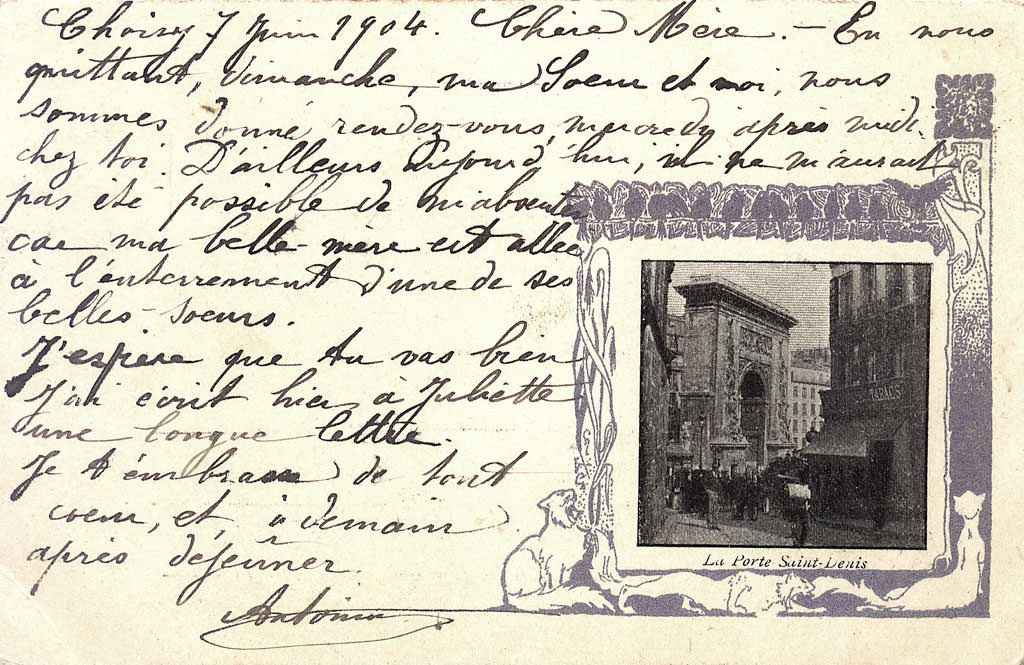 Choisy 7 Juin 1904. Chère Mère. – En nous
quittant, dimanche, ma Soeur et moi, nous
sommes donné rendez-vous, mercredi après midi
chez toi. D'ailleurs aujourd'hui, il ne m'aurait
pas été possible de m'absenter
car ma belle-mère est allée
à l'enterrement d'une de ses
belles-soeurs.
J'espère que tu vas bien
J'ai écrit hier à Juliette
une longue lettre.
Je t'embrasse de tout
coeur, et, à demain
après déjeûner.
TABACS
La Porte Saint-Denis